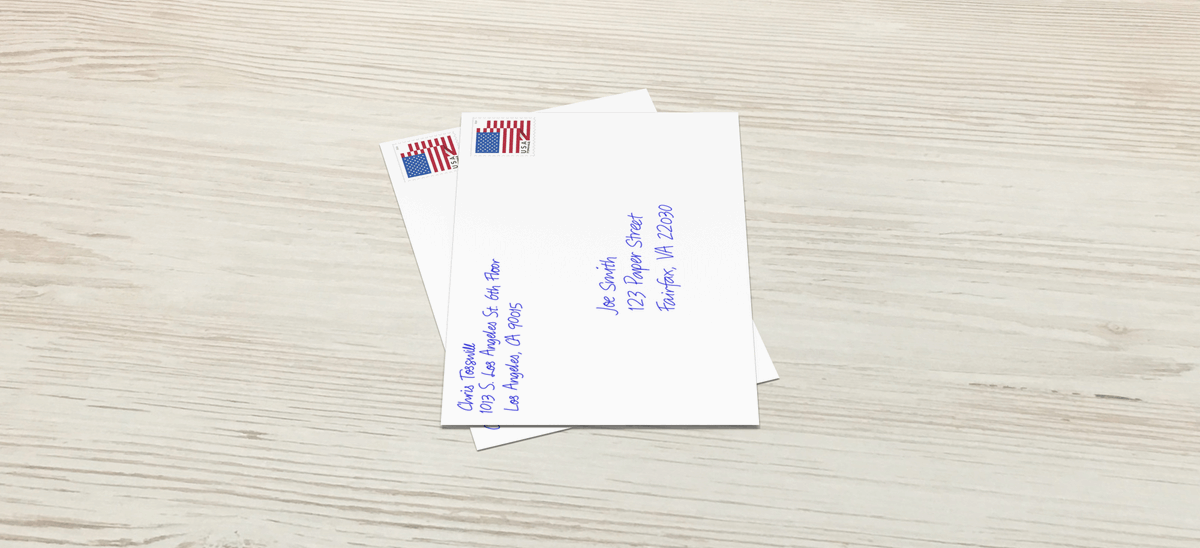 Chris Tosswill
1013 S. Los Angeles St. 6th Floor
Los Angeles, CA 90015
Joe Smith
123 Paper Street
Fairfax, VA 22030
USA
USA